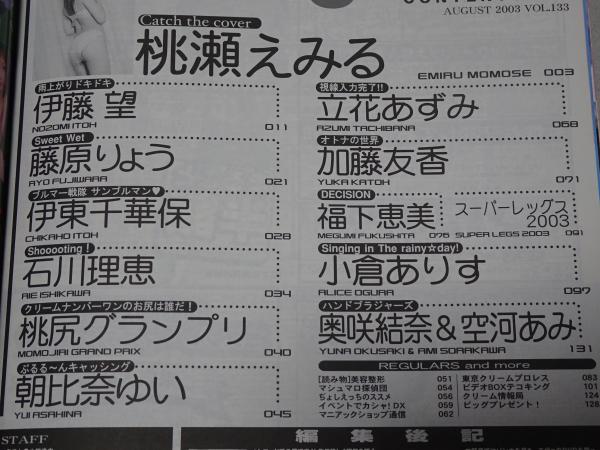 AUGUST 2003 VOL.133
Catch the cover
桃瀬えみる
EMIRU MOMOSE 003
雨上がりドキドキ
伊藤 望
NOZOMI ITOH 011
Sweet Wet
藤原りょう
RYO FUJIWARA 021
ブルマー戦隊 サンブルマン♥
伊東千華保
CHIKAHO ITOH 028
Shooooting!
石川理恵
RIE ISHIKAWA 034
クリームナンバーワンのお尻は誰だ!
桃尻グランプリ
MOMOJIRI GRAND PRIX 040
ぷるる〜んキャッシング
朝比奈ゆい
YUI ASAHINA 045
視線入力完了!!
立花あずみ
AZUMI TACHIBANA 068
オトナの世界
加藤友香
YUKA KATOH 071
DECISION
福下恵美
MEGUMI FUKUSHITA 076
スーパーレッグス
2003
SUPER LEGS 2003 091
Singing in The rainy☆day!
小倉ありす
ALICE OGURA 097
ハンドブラジャーズ
奥咲結奈&空河あみ
YUNA OKUSAKI & AMI SORAKAWA 131
REGULARS and more
[読み物]美容整形 051
マシュマロ探偵団 054
ちょしえっちのススメ 056
イベントでカシャ!DX 059
マニアックショップ通信 062
東京クリームプロレス 083
ビデオBOXテコキング 101
クリーム情報局 124
ビッグプレゼント! 128
STAFF
編集後記